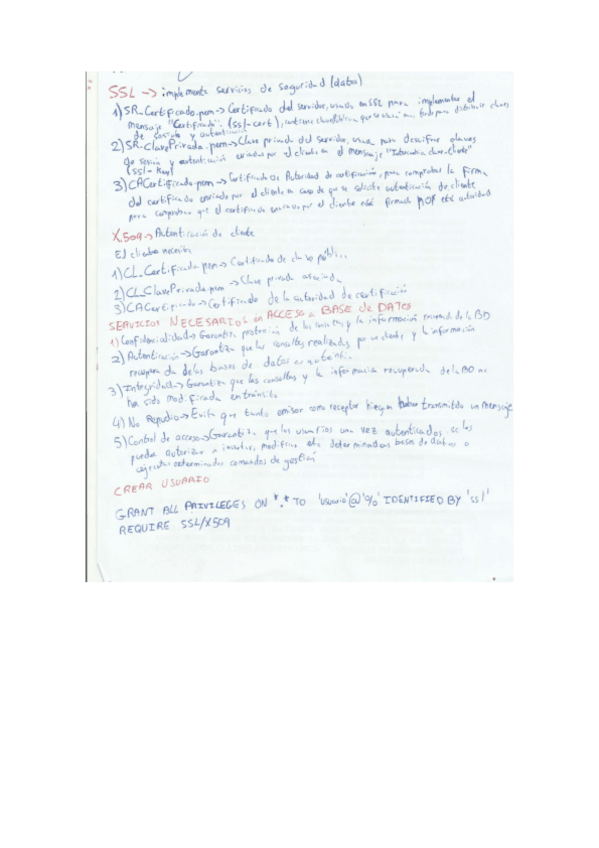 SSL -> implementa servicios de seguridad (datos)
1) SR_Certificado.pem -> Certificado del servidor, usado en SSL para implementar el
mensaje "Certificado". (ssl-cert), contiene clave pública que se usará más tarde para distribuir claves
de sesión y autenticación
2) SR_ClavePrivada.pem -> Clave privada del servidor, usada para descifrar claves
de sesión y autenticación enviadas por el cliente en el mensaje "Intercambio clave-cliente"
(ssl-key)
3) CACertificado.pem -> Certificado de Autoridad de certificación, para comprobar la firma
del certificado enviado por el cliente en caso de que se solicite autenticación de cliente
para comprobar que el certificado enviado por el cliente está firmado por esta autoridad
X.509 -> Autenticación de cliente
El cliente necesita
1) CL_Certificado.pem -> Certificado de clave públi...
2) CL_ClavePrivada.pem -> Clave privada asociada
3) CACertificado -> Certificado de la autoridad de certificación
SERVICIOS NECESARIOS en ACCESO a BASE de DATOS
1) Confidencialidad -> Garantiza protección de las consultas y la información recuperada de la BD
2) Autenticación -> Garantiza que las consultas realizadas por usuarios y la información
recuperada de las bases de datos es auténtica
3) Integridad -> Garantiza que las consultas y la información recuperada de la BD no
ha sido modificada en tránsito
4) No Repudio -> Evita que tanto emisor como receptor nieguen haber transmitido un mensaje
5) Control de acceso -> Garantiza que los usuarios una vez autenticados se les
pueda autorizar a insertar, modificar etc determinadas bases de datos o
ejecutar determinados comandos de gestión
CREAR USUARIO
GRANT ALL PRIVILEGES ON *.* TO 'usuario'@'%' IDENTIFIED BY 'ssl'
REQUIRE SSL/X509